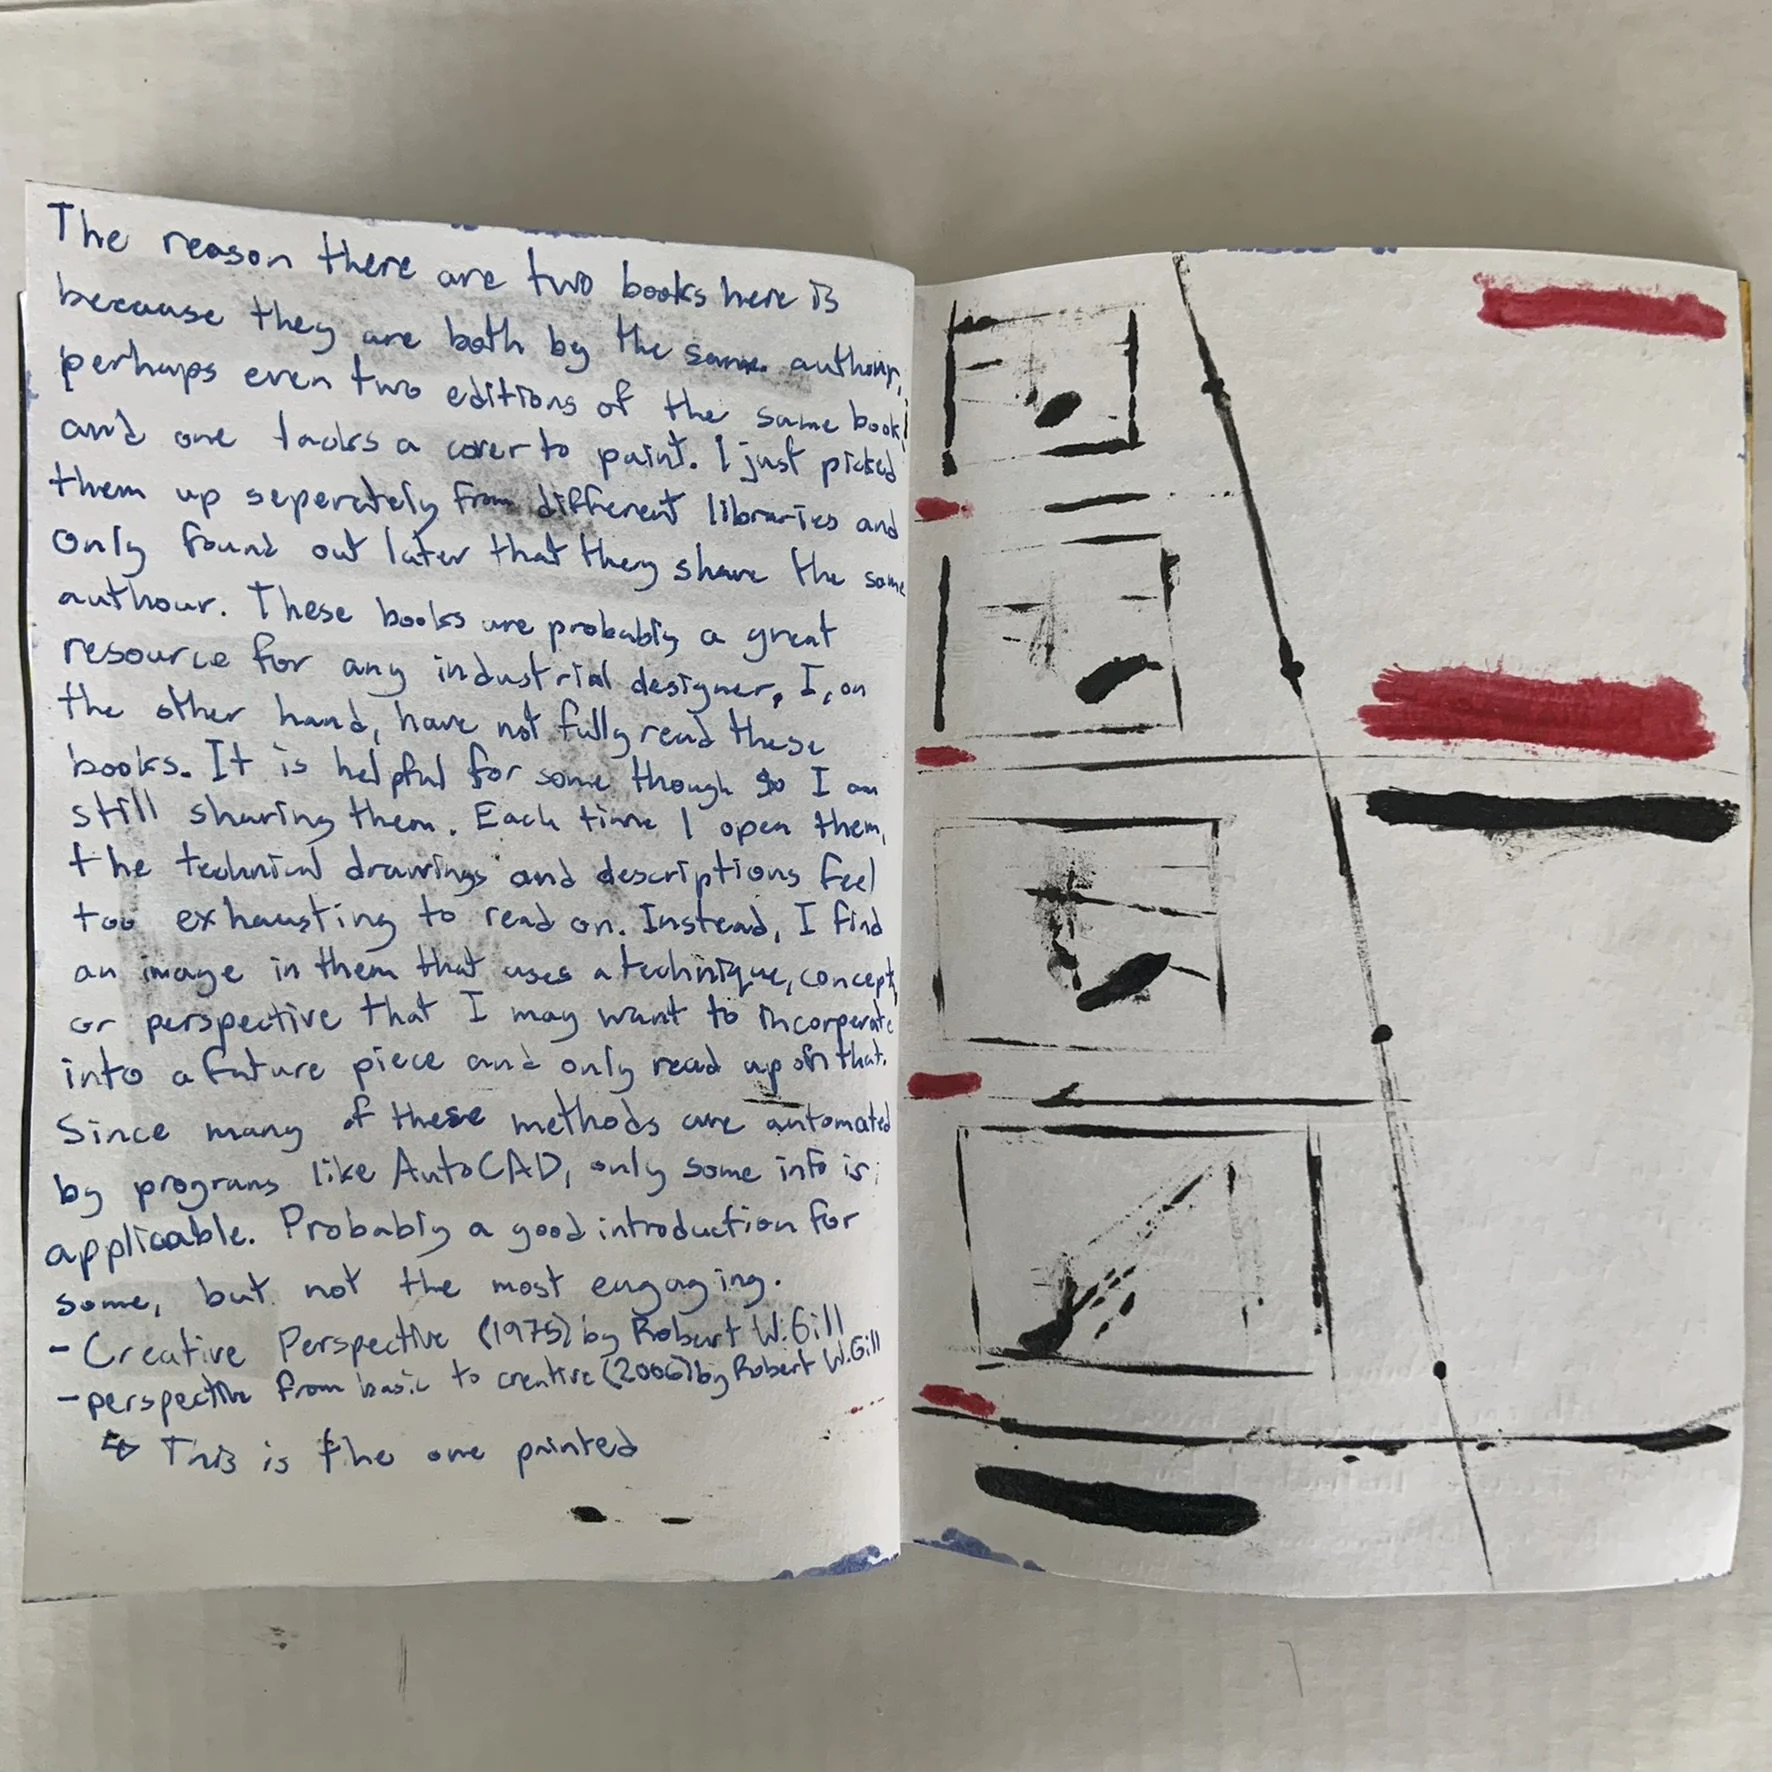 The reason there are two books here is
because they are both by the same authour,
perhaps even two editions of the same book
and one lacks a cover to paint. I just picked
them up seperately from different libraries and
only found out later that they share the same
authour. These books are probably a great
resource for any industrial designer, I, on
the other hand, have not fully read these
books. It is helpful for some though so I am
still sharing them. Each time I open them,
the technical drawings and descriptions feel
too exhausting to read on. Instead, I find
an image in them that uses a technique, concept,
or perspective that I may want to incorperate
into a future piece and only read up on that.
Since many of these methods are automated
by programs like AutoCAD, only some info is
applicable. Probably a good introduction for
some, but not the most engaging.
- Creative Perspective (1975) by Robert W. Gill
- perspective from basic to creative (2006) by Robert W. Gill
This is the one painted